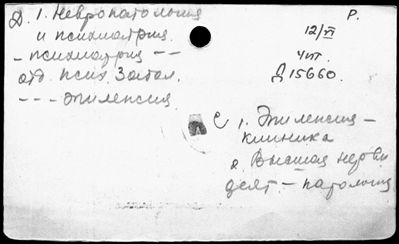 Д. 1. Невропатология
и психиатрия.
- психиатрия --
отд. псих. забол.
--- эпилепсия
Р.
12/VI
чит.
Д 15660.
С 1. Эпилепсия -
клиника
2. Высшая нервн
деят - патология